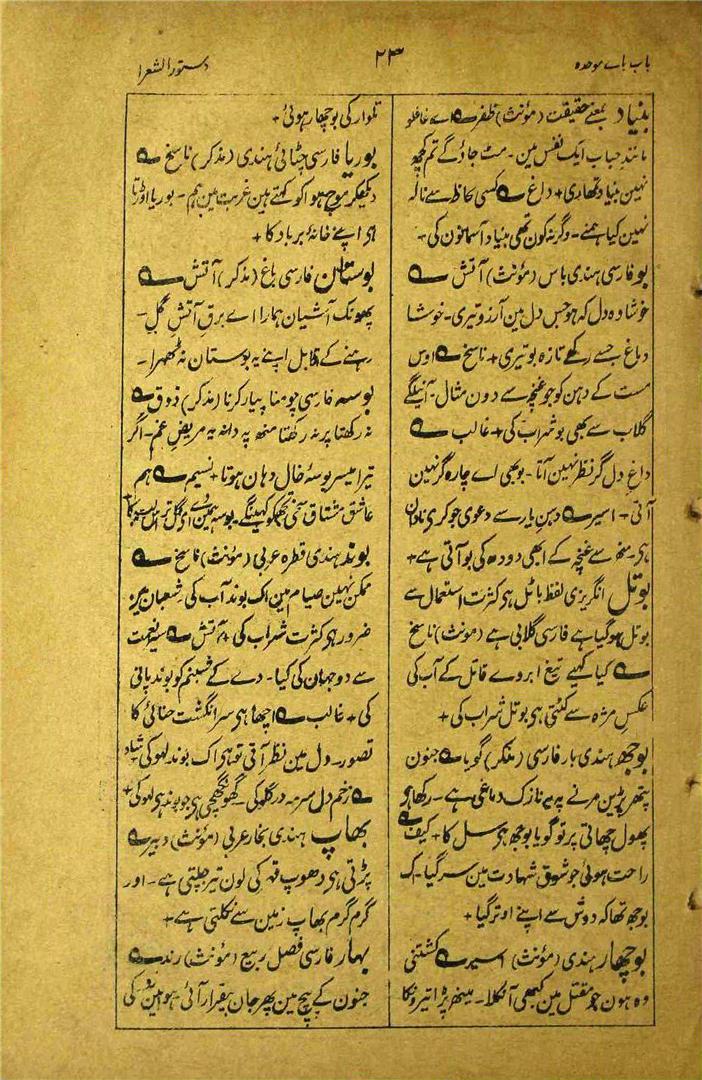 باب باے موحدہ
۲۳
دستور الشعرا
بنیاد بمعنے حقیقت (مؤنث) ظفر ؎ اے غافلو
مانند حباب ایک نفس مین۔ مٹ جاؤگے تم کچھ
نہین بنیاد تمھاری + داغ ؎ کسی لحاظ سے نالہ
نہین کیا ہمنے۔ وگرنہ کون تھی بنیاد آسمانون کی۔
بو فارسی ہندی باس (مؤنث) آتش ؎
خوشا وہ دل کہ ہو جس دل مین آرزو تیری۔ خوشا
دماغ جسے رکھے تازہ بو تیری + ناسخ ؎ اوس
مست کے دہن کو جو غنچہ سے دون مثال۔ آئیگے
گلاب سے بھی بو شراب کی + غالب ؎
داغ دل گر نظر نہین آتا۔ بو بھی اے چارہ گر نہین
آتی + اسیر ؎ دہن یار سے دعوی جو کری نادان
ہی۔ منھ سے غنچہ کے ابھی دودھ کی بو آتی ہے +
بوتل انگریزی لفظ باٹل ہی کثرت استعمال سے
بوتل ہوگیا ہے فارسی گلابی ہے (مؤنث) ناسخ
؎ کیا کہیے تیغ ابروے قاتل کے آب کی
عکس مژہ سے کٹتی ہی بوتل شراب کی +
بوجھ ہندی بار فارسی (مذکر) گویا ؎ جنون
پتھر پڑین مرنے پہ یہ نازک دماغی ہے۔ رکھا ہی
پھول چھاتی پر تو گویا بوجھ ہی سل کا + کیف ؎
راحت ہوئی جو شوق شہادت مین سر گیا۔ اک
بوجھ تھا کہ دوش سے اپنے اوتر گیا +
بوچھار ہندی (مؤنث) اسیر ؎ کشتنی
وہ ہون جو مقتل مین کبھی آنکلا۔ مینھ پڑا تیرونکا
تلوار کی بوچھار ہوئی +
بوریا فارسی چٹائی ہندی (مذکر) ناسخ ؎
دیکھکر موج ہوا کو کہتے ہین غربت مین ہم۔ بوریا اوڑتا
ہی اپنے خانۂ برباد کا +
بوستان فارسی باغ (مذکر) آتش ؎
پھونک آشیان ہمارا اے برق آتش گل۔
رہنے کے قابل اپنے یہ بوستان نہ ٹھہرا۔
بوسہ فارسی چومنا پیار کرنا (مذکر) ذوق ؎
نہ رکھتا پر نہ رکھتا منھ پہ دانہ یہ مریض غم۔ اگر
تیرا میسر بوسۂ خال دہان ہوتا + نسیم ؎ ہم
عاشق مشتاق
بوند ہندی قطرہ عربی (مؤنث) ناسخ ؎
ممکن نہین صیام مین اک بوند آب کی۔ شعبان مین
ضرور ہی کثرت شراب کی + آتش ؎ سیر نعمت
سے دو جہان کی کیا۔ دے کے شبنم کو بوند پانی
کی + غالب ؎ اچھا ہی سر انگشت حنائی کا
تصور۔ دل مین نظر آتی تو ہی اک بوند لہو کی + شاد
؎ زخم دل سرمہ در گلو کی۔ گھونگھچی ہی جو بوند ہی لہو کی +
بھاپ ہندی بخار عربی (مؤنث) دبیر ؎
پڑتی ہی دھوپ قہر کی لون تیر چلتی ہے۔ اور
گرم گرم بھاپ زمین سے نکلتی ہے +
بہار فارسی فصل ربیع (مؤنث) رند ؎
جنون کے پیچ مین پھر جان بیقرار آئی۔